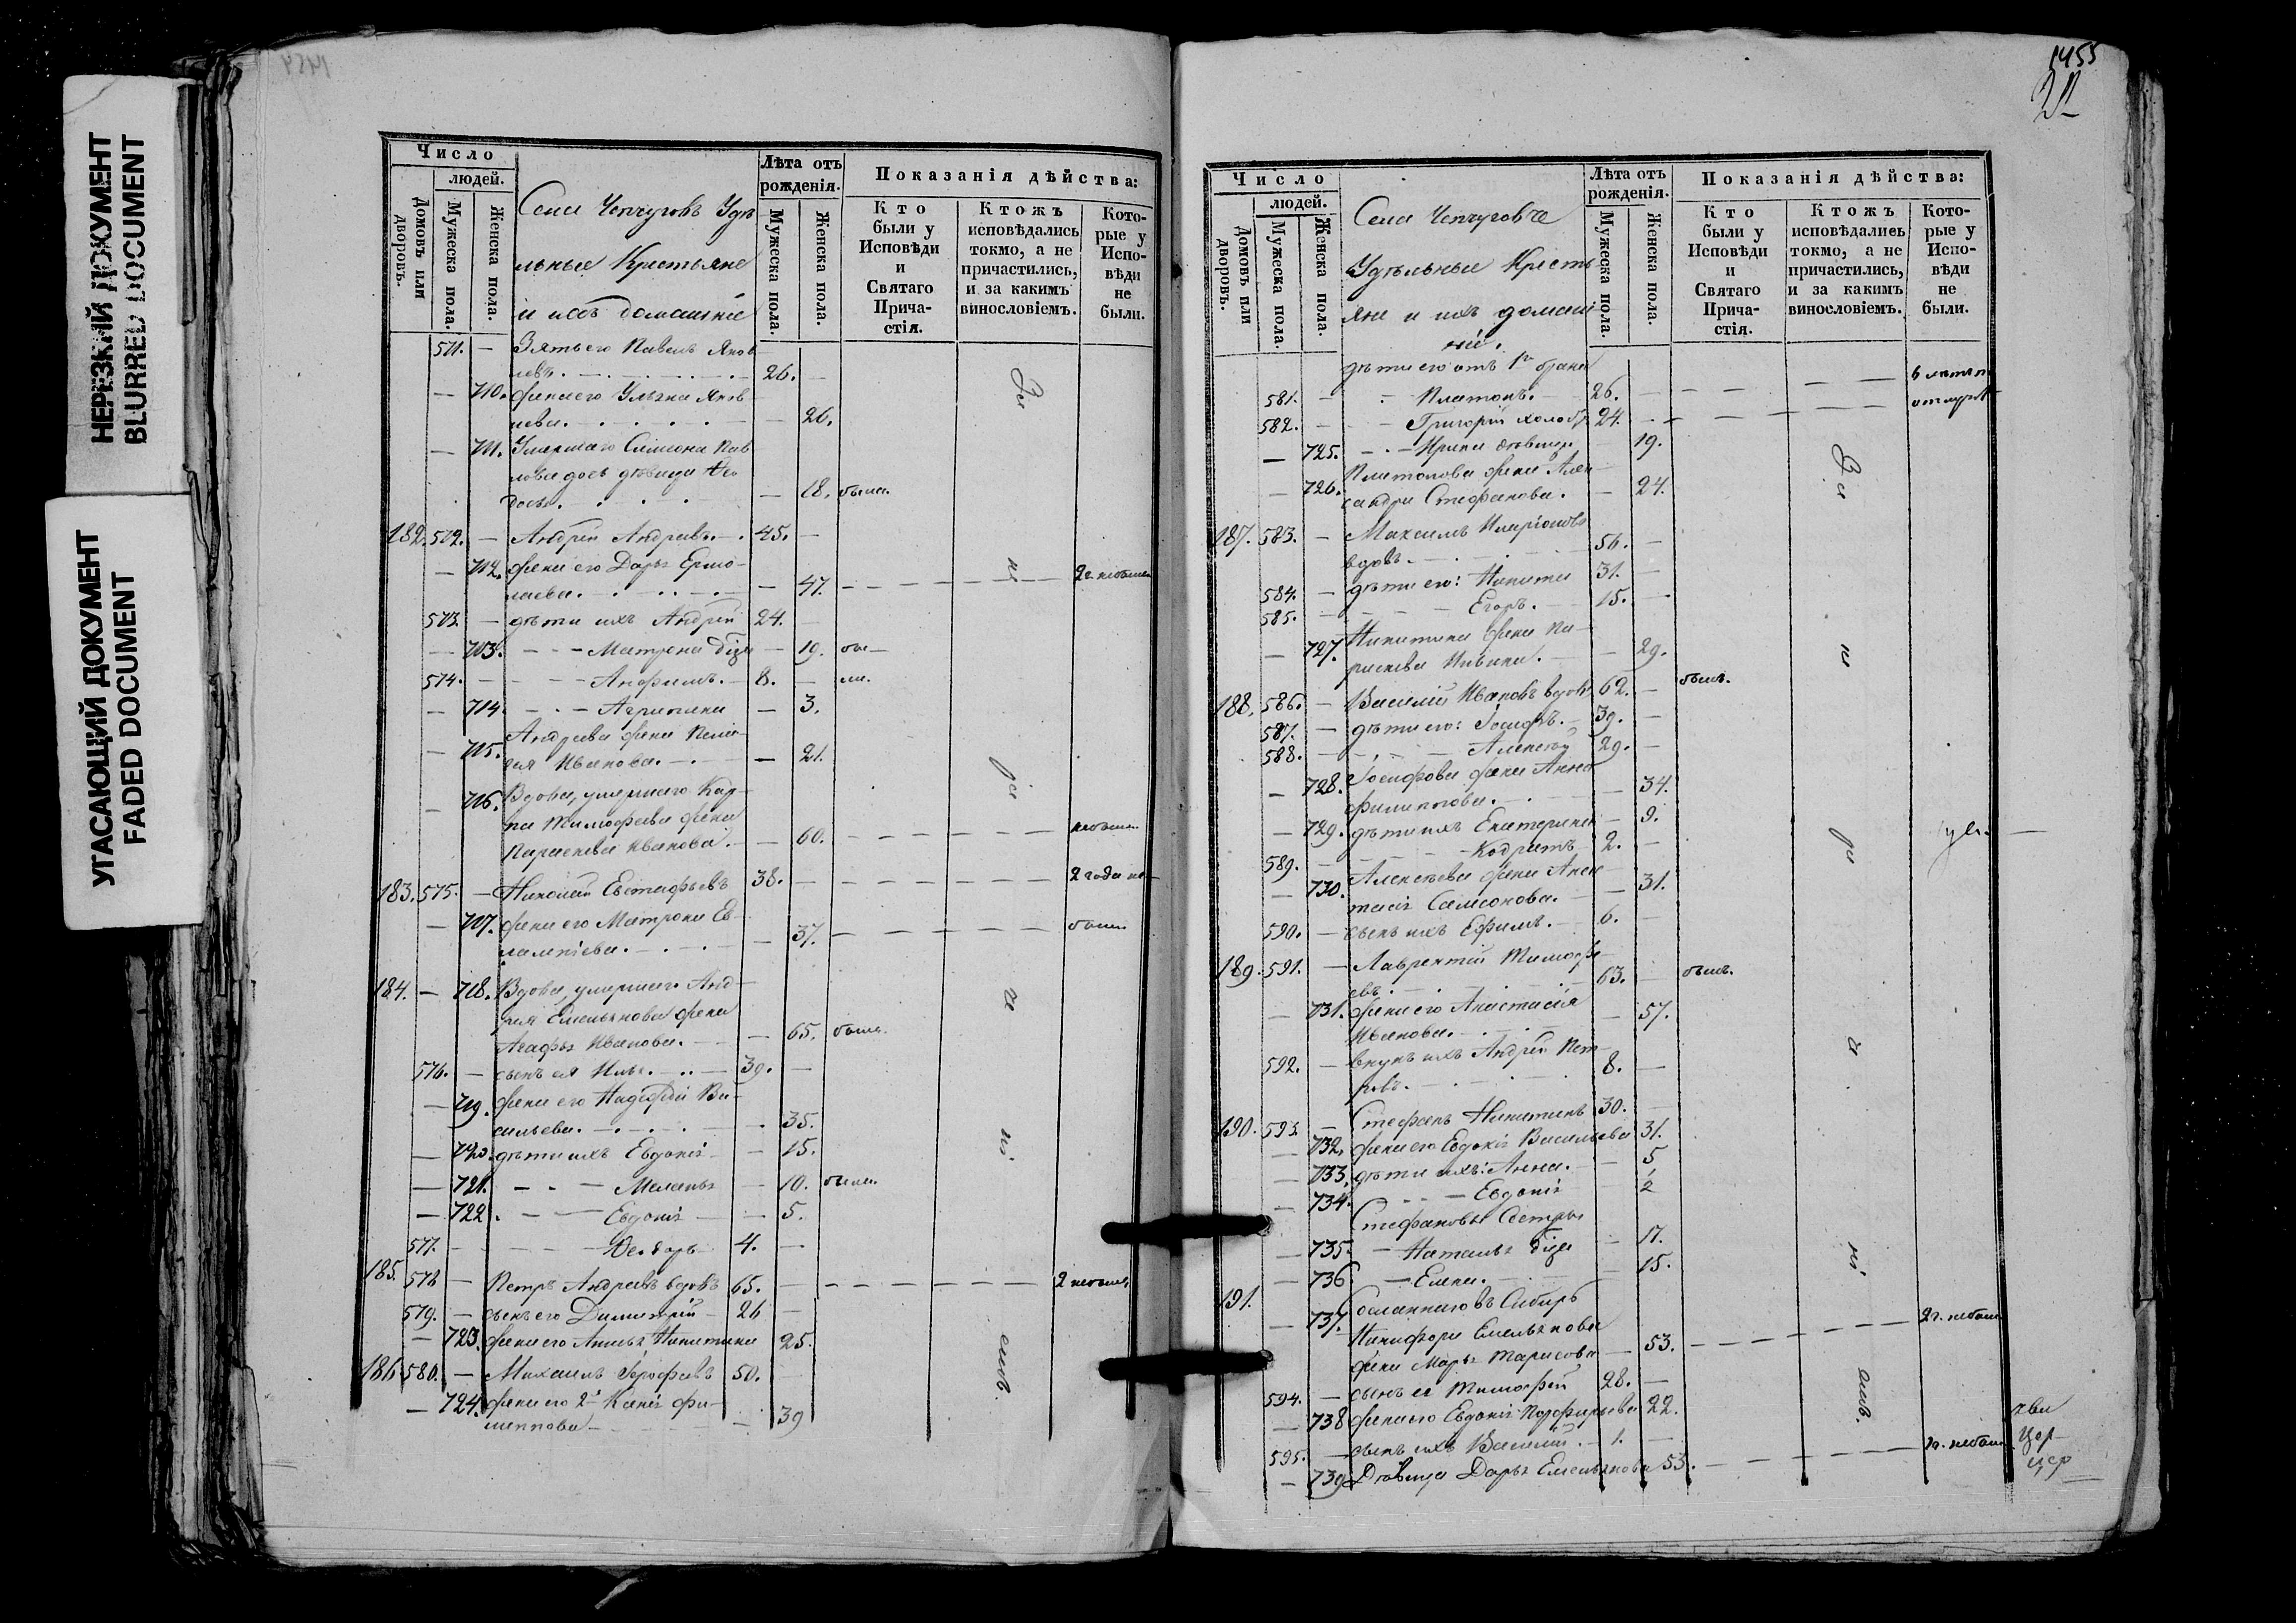 НЕРЕЗКИЙ ДОКУМЕНТ
BLURRED DOCUMENT
УГАСАЮЩИЙ ДОКУМЕНТ
FADED DOCUMENT
Число
людей.
Домовъ или дворовъ.
Мужеска пола.
Женска пола.
Села Чепчуговъ Удѣ-
льные Крестьяне
и ихъ домашніе
Лѣта отъ рожденія.
Мужеска пола.
Женска пола.
Показанія дѣйства:
Кто были у Исповѣди и Святаго Причастія.
Ктожъ исповѣдались токмо, а не причастились, и за какимъ винословіемъ.
Которые у Исповѣди не были.
571. — Зять его Павелъ Яков-
левъ. 26. —
— 710. жена его Ульяна Яков-
лева. — 26.
— 711. Умершаго Симеона Пав-
лова дочь дѣвица Ѳео-
досья. — 18. была.
182. 572. — Андрей Андреевъ. 45. —
— 712. жена его Дарья Ермо-
лаева. — 47. 2 г. не была
573. — дѣти ихъ Андрей 24. —
— 713. — Матрона — 19. бы—
574. — Анфимъ. 8. — ли.
— 714. — Агрипина — 3.
— 715. Андреева жена Пела-
гея Иванова. — 21.
— 716. Вдова, умершаго Кар-
па Тимофеева жена
Параскева Иванова. — 60. не была
183. 575. — Николай Евстафьевъ 38. — 2 года не
— 717. жена его Матрона Ев-
лампіева. — 37. были
184. — 718. Вдова, умершаго Анд-
рея Емельянова жена
Агафья Иванова. — 65. была.
576. — сынъ ея Илья. 39. —
— 719. жена его Надежда Ва-
сильева. 35.
— 720. дѣти ихъ Евдокія — 15.
— 721. — Меланья — 10. были.
— 722. — Евдокія — 5.
577. — Ѳеодоръ 4. —
185. 578 — Петръ Андреевъ вдовъ 65. — 2 не былъ
579. — сынъ его Димитрій 26 —
— 723. жена его Анисья Никитина 25.
186 580. — Михаилъ 50. —
— 724. жена его 2я Ксенія Фи-
липпова — 39
За
не
ра
че
ні
емъ.
1455
22
Число
людей.
Домовъ или дворовъ.
Мужеска пола.
Женска пола.
Села Чепчуговъ
Удѣльные Кресть
яне и ихъ домаш
ніе.
Лѣта отъ рожденія.
Мужеска пола.
Женска пола.
Показанія дѣйства:
Кто были у Исповѣди и Святаго Причастія.
Ктожъ исповѣдались токмо, а не причастились, и за какимъ винословіемъ.
Которые у Исповѣди не были.
дѣти его отъ 1го брака
581. — Платонъ. 26. —
582. — Григорій холост. 24. —
— 725. — Ирина дѣвица 19.
— 726. Платонова жена Алек-
сандра Стефанова. — 24.
187. 583. — Максимъ Иларіоновъ
вдовъ. 56. —
584. — дѣти его: Никита 31. —
585. — Егоръ. 15. —
— 727. Никитина жена Па-
раскева Ильина. — 29.
188. 586. — Василій Ивановъ вдовъ 62. — былъ.
587. — дѣти его: Іосифъ. 39. —
588. — Алексѣй 29. —
— 728. Іосифова жена Анна
Филиппова. — 34.
— 729. дѣти ихъ Екатерина — 9.
589. — Кодратъ 2. —
— 730. Алексѣева жена Анас
тасія Самсонова. — 31.
590. — сынъ ихъ Ефимъ. 6. —
189. 591. — Лаврентій Тимофе
евъ. 63. — былъ.
— 731. жена его Анастасія
Иванова. — 57.
592. — внукъ ихъ Андрей Пет-
ровъ. 8. —
190. 593. — Стефанъ Никитинъ 30. —
— 732. жена его Евдокія Васильева 31.
— 733. дѣти ихъ: Анна. — 5
— 734. — Евдокія — 2
Стефановы Сестры
— 735. — Наталья — 17.
— 736. — Елена. — 15.
191. — 737. Сосланнаго въ Сибирь
Никифора Емельянова
жена Марья Тарасова — 53. 2 г. не была
594. — сынъ ея Тимофей 28. —
— 738 жена его Евдокія Порфирьева 22.
595. — сынъ ихъ Василій. 1. —
— 739 Дѣвица Дарья Емельянова 53. не была
За
не
ра
че
ні
емъ.